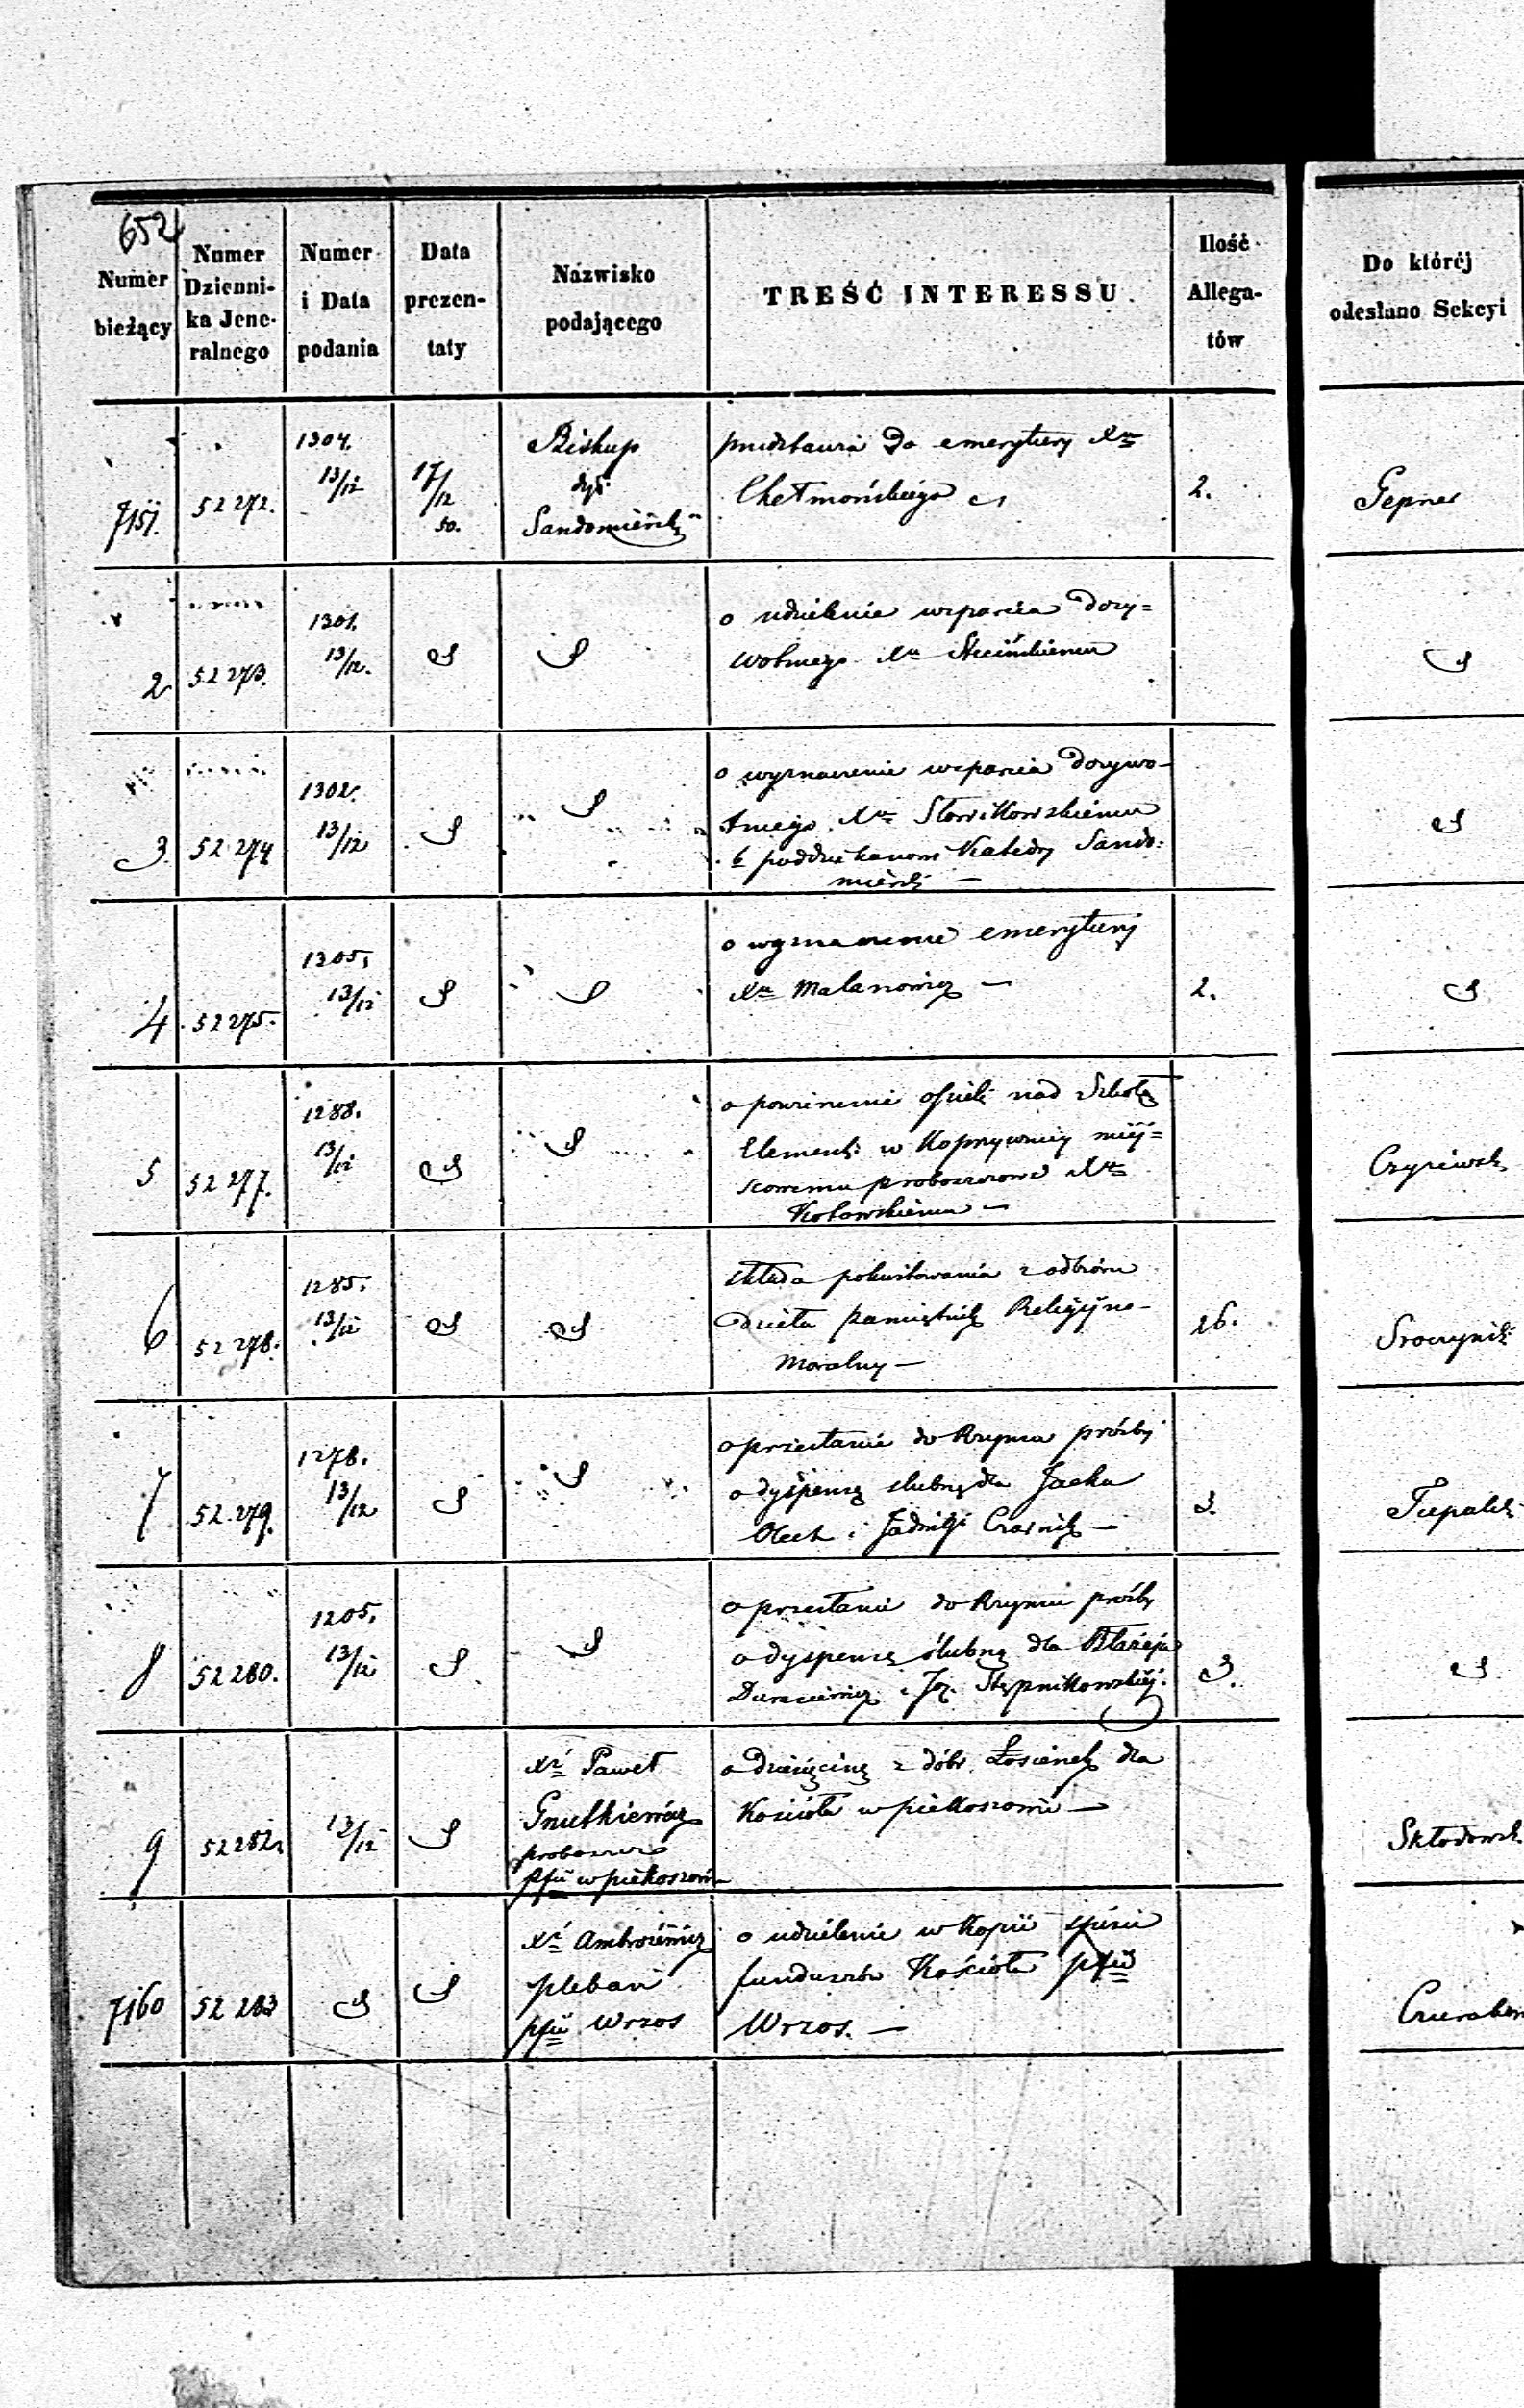 652
Numer bieżący
Numer Dzienni-ka Jene-ralnego
Numer i Data podania
Data prezen-taty
Nazwisko podającego
TREŚĆ INTERESSU.
Ilość Allega-tów
Do której odesłano Sekcyi
7151. 52272. 1304. 13/12 17/12 50.
Biskup
dyi
Sandomierski
przedstawia do emerytury Xa
Chełmońskiego
2.
Gepner
2 52273. 1301. 13/12.
o udzielenie wsparcia doży=
wotniego Xu
3 52274 1302. 13/12
o wyznaczenie wsparcia dożywo-
tniego Xu Słowikowskiemu
b poddziekanom Katedry Sando:
mierski —
4 52275. 1305. 13/12
o wyznaczenie emerytury
Xu Malanowicz —
2.
5 52277. 1288. 13/12
o powierzenie opieki nad Szkołą
Element: w Koprzywnicy miej=
scowemu proboszczowi Xu
Kotowskiemu —
Czyżewsk
6 52278. 1285. 13/12
składa pokwitowania z odbioru
dzieła Pamiętnik Religijno-
Moralny —
26.
Sroczyńsk
7 52279. 1278. 13/12
o przesłanie do Rzymu prośby
o dyspensę ślubną dla Jacka
Olech i Jadwigi Czarnik —
3.
8 52280. 1205. 13/12
o przesłanie do Rzymu prośby
o dyspensę ślubną dla Błażeja
i Joz. Stępnikowskiej.
3.
9 52282 13/12
Xd Paweł
Gnutkiewicz
proboszcz
pfii w piekoszow
o dziesięcinę z dóbr Łosienek dla
Kościoła w piekoszowie —
Skłodowsk
7160 52283
Xd Ambrożewicz
pleban
pfii Wrzos
o udzielenie w Kopii spisu
funduszów Kościoła pfii
Wrzos. —